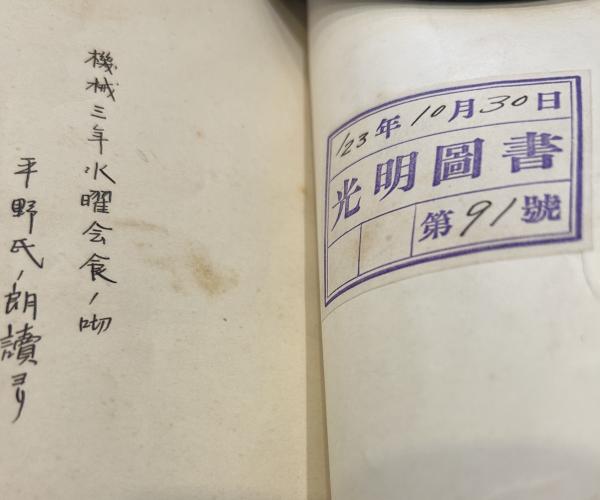 機械三年水曜会食ノ砌
平野氏ノ朗讀ヨリ
'23年10月30日
光明圖書
第91號